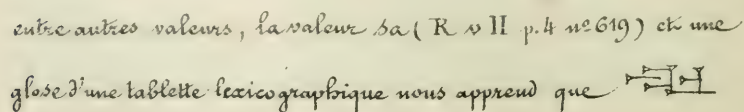 entre autres valeurs, la valeur sa (R v II p. 4 nº 619) et une
glose d'une tablette lexicographique nous apprend que